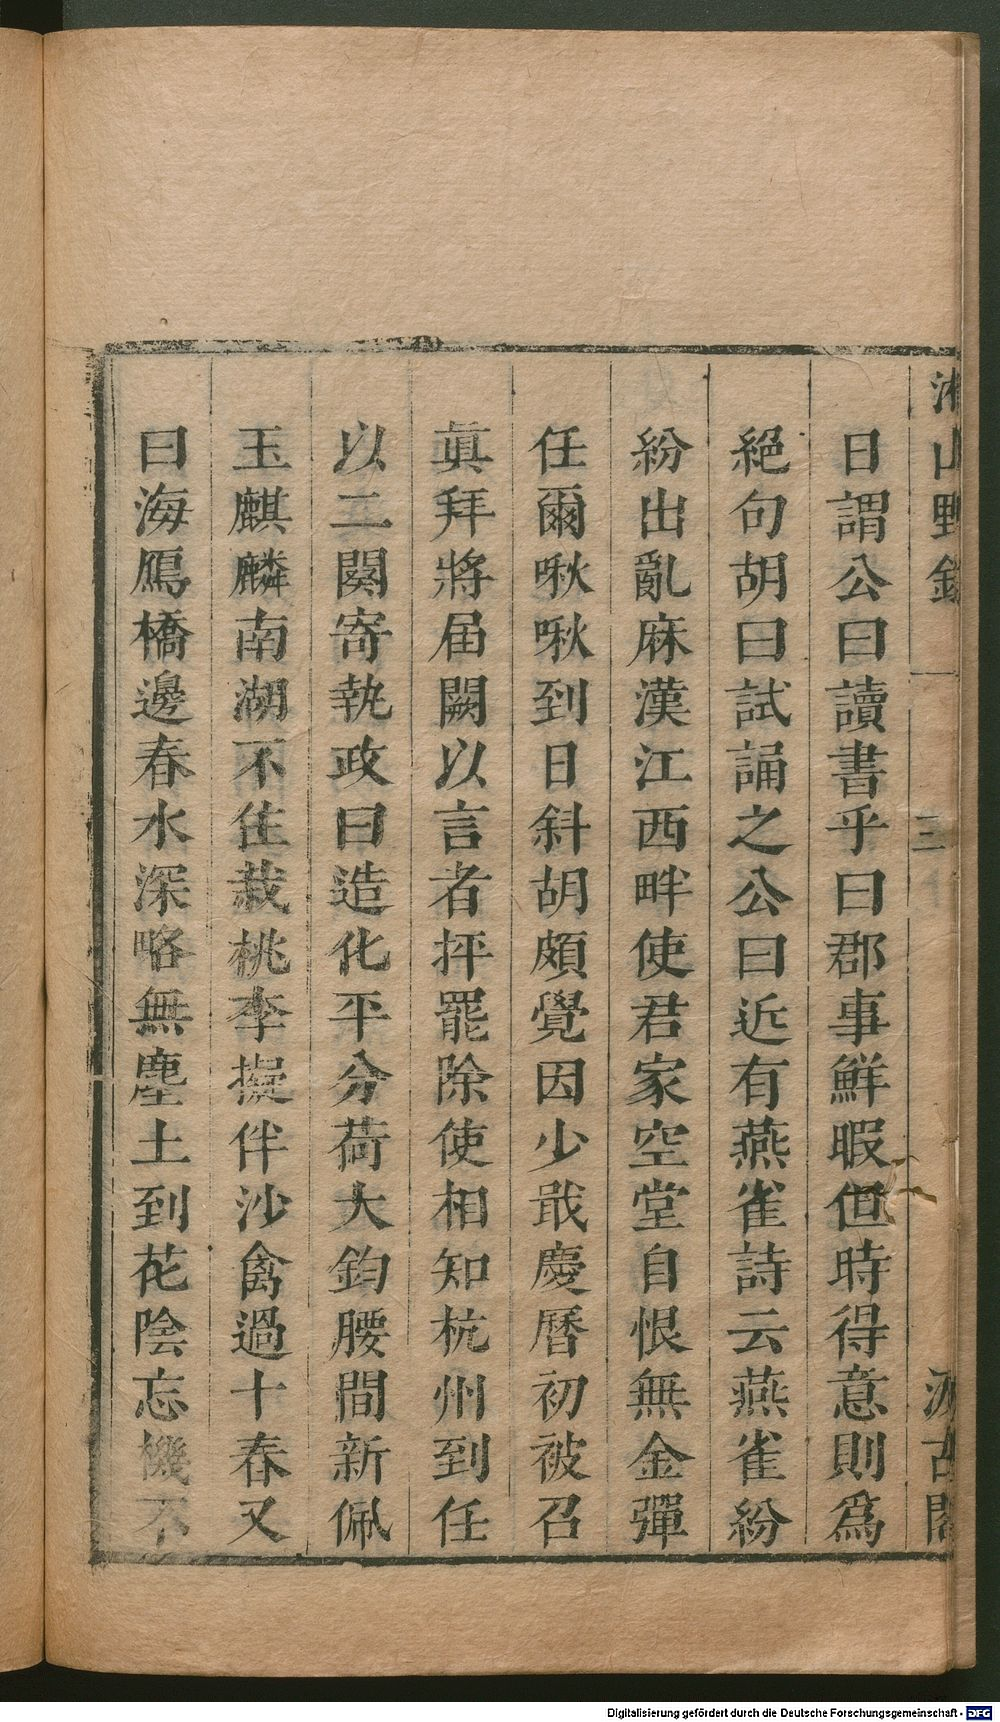 湘山野錄 三 汲古閣
日謂公曰讀書乎曰郡事鮮暇但時得意則爲
絕句胡曰試誦之公曰近有燕雀詩云燕雀紛
紛出亂麻漢江西畔使君家空堂自恨無金彈
任爾啾啾到日斜胡頗覺因少戢慶曆初被召
眞拜將届闕以言者抨罷除使相知杭州到任
以二闋寄執政曰造化平分荷大鈞腰間新佩
玉麒麟南湖不住栽桃李擬伴沙禽過十春又
曰海鴈橋邊春水深略無塵土到花陰忘機不
Digitalisierung gefördert durch die Deutsche Forschungsgemeinschaft - DFG